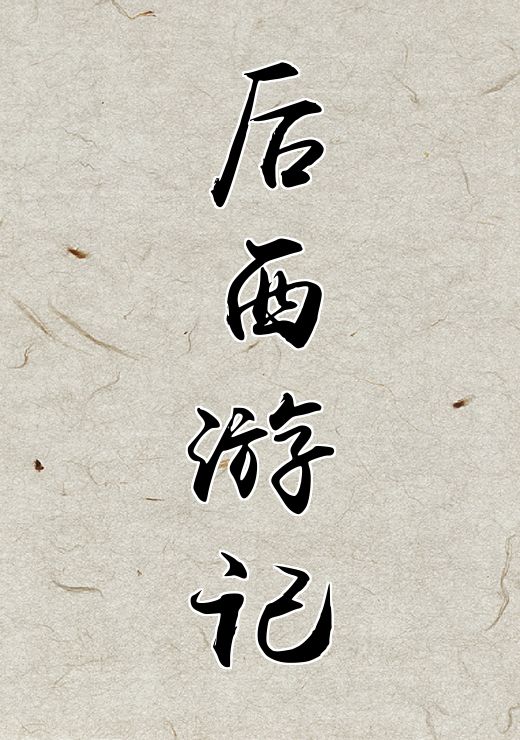 后西游记